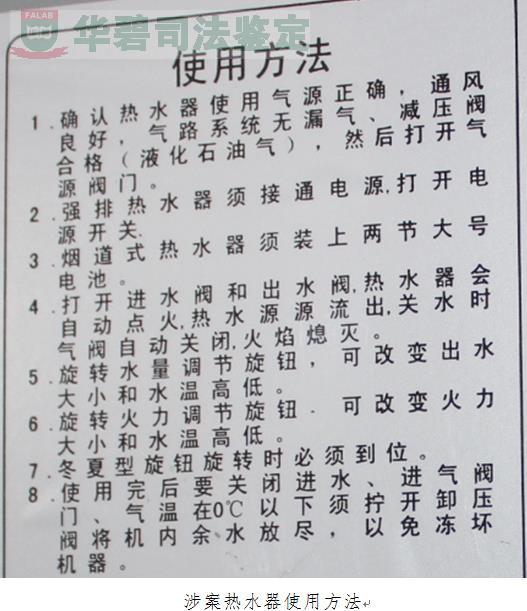 FALAB
华碧司法鉴定
使用方法
1.确认热水器使用气源正确，通风
良好，气路系统无漏气、减压阀
合格(液化石油气)，然后打开气
源阀门。
2.强排热水器须接通电源,打开电
源开关.
3.烟道式热水器须装上两节大号
电池。
4.打开进水阀和出水阀,热水器会
自动点火,热水源源流出,关水时
气阀自动关闭,火焰熄灭。
5.旋转水量调节旋钮，可改变出水
大小和水温高低。
6.旋转火力调节旋钮.可改变火力
大小和水温高低。
7.冬夏型旋钮旋转时必须到位。
8.使用完后要关闭进水、进气阀
门、气温在0℃以下须拧开卸压
阀将机内余水放尽，以免冻坏
机器。
涉案热水器使用方法